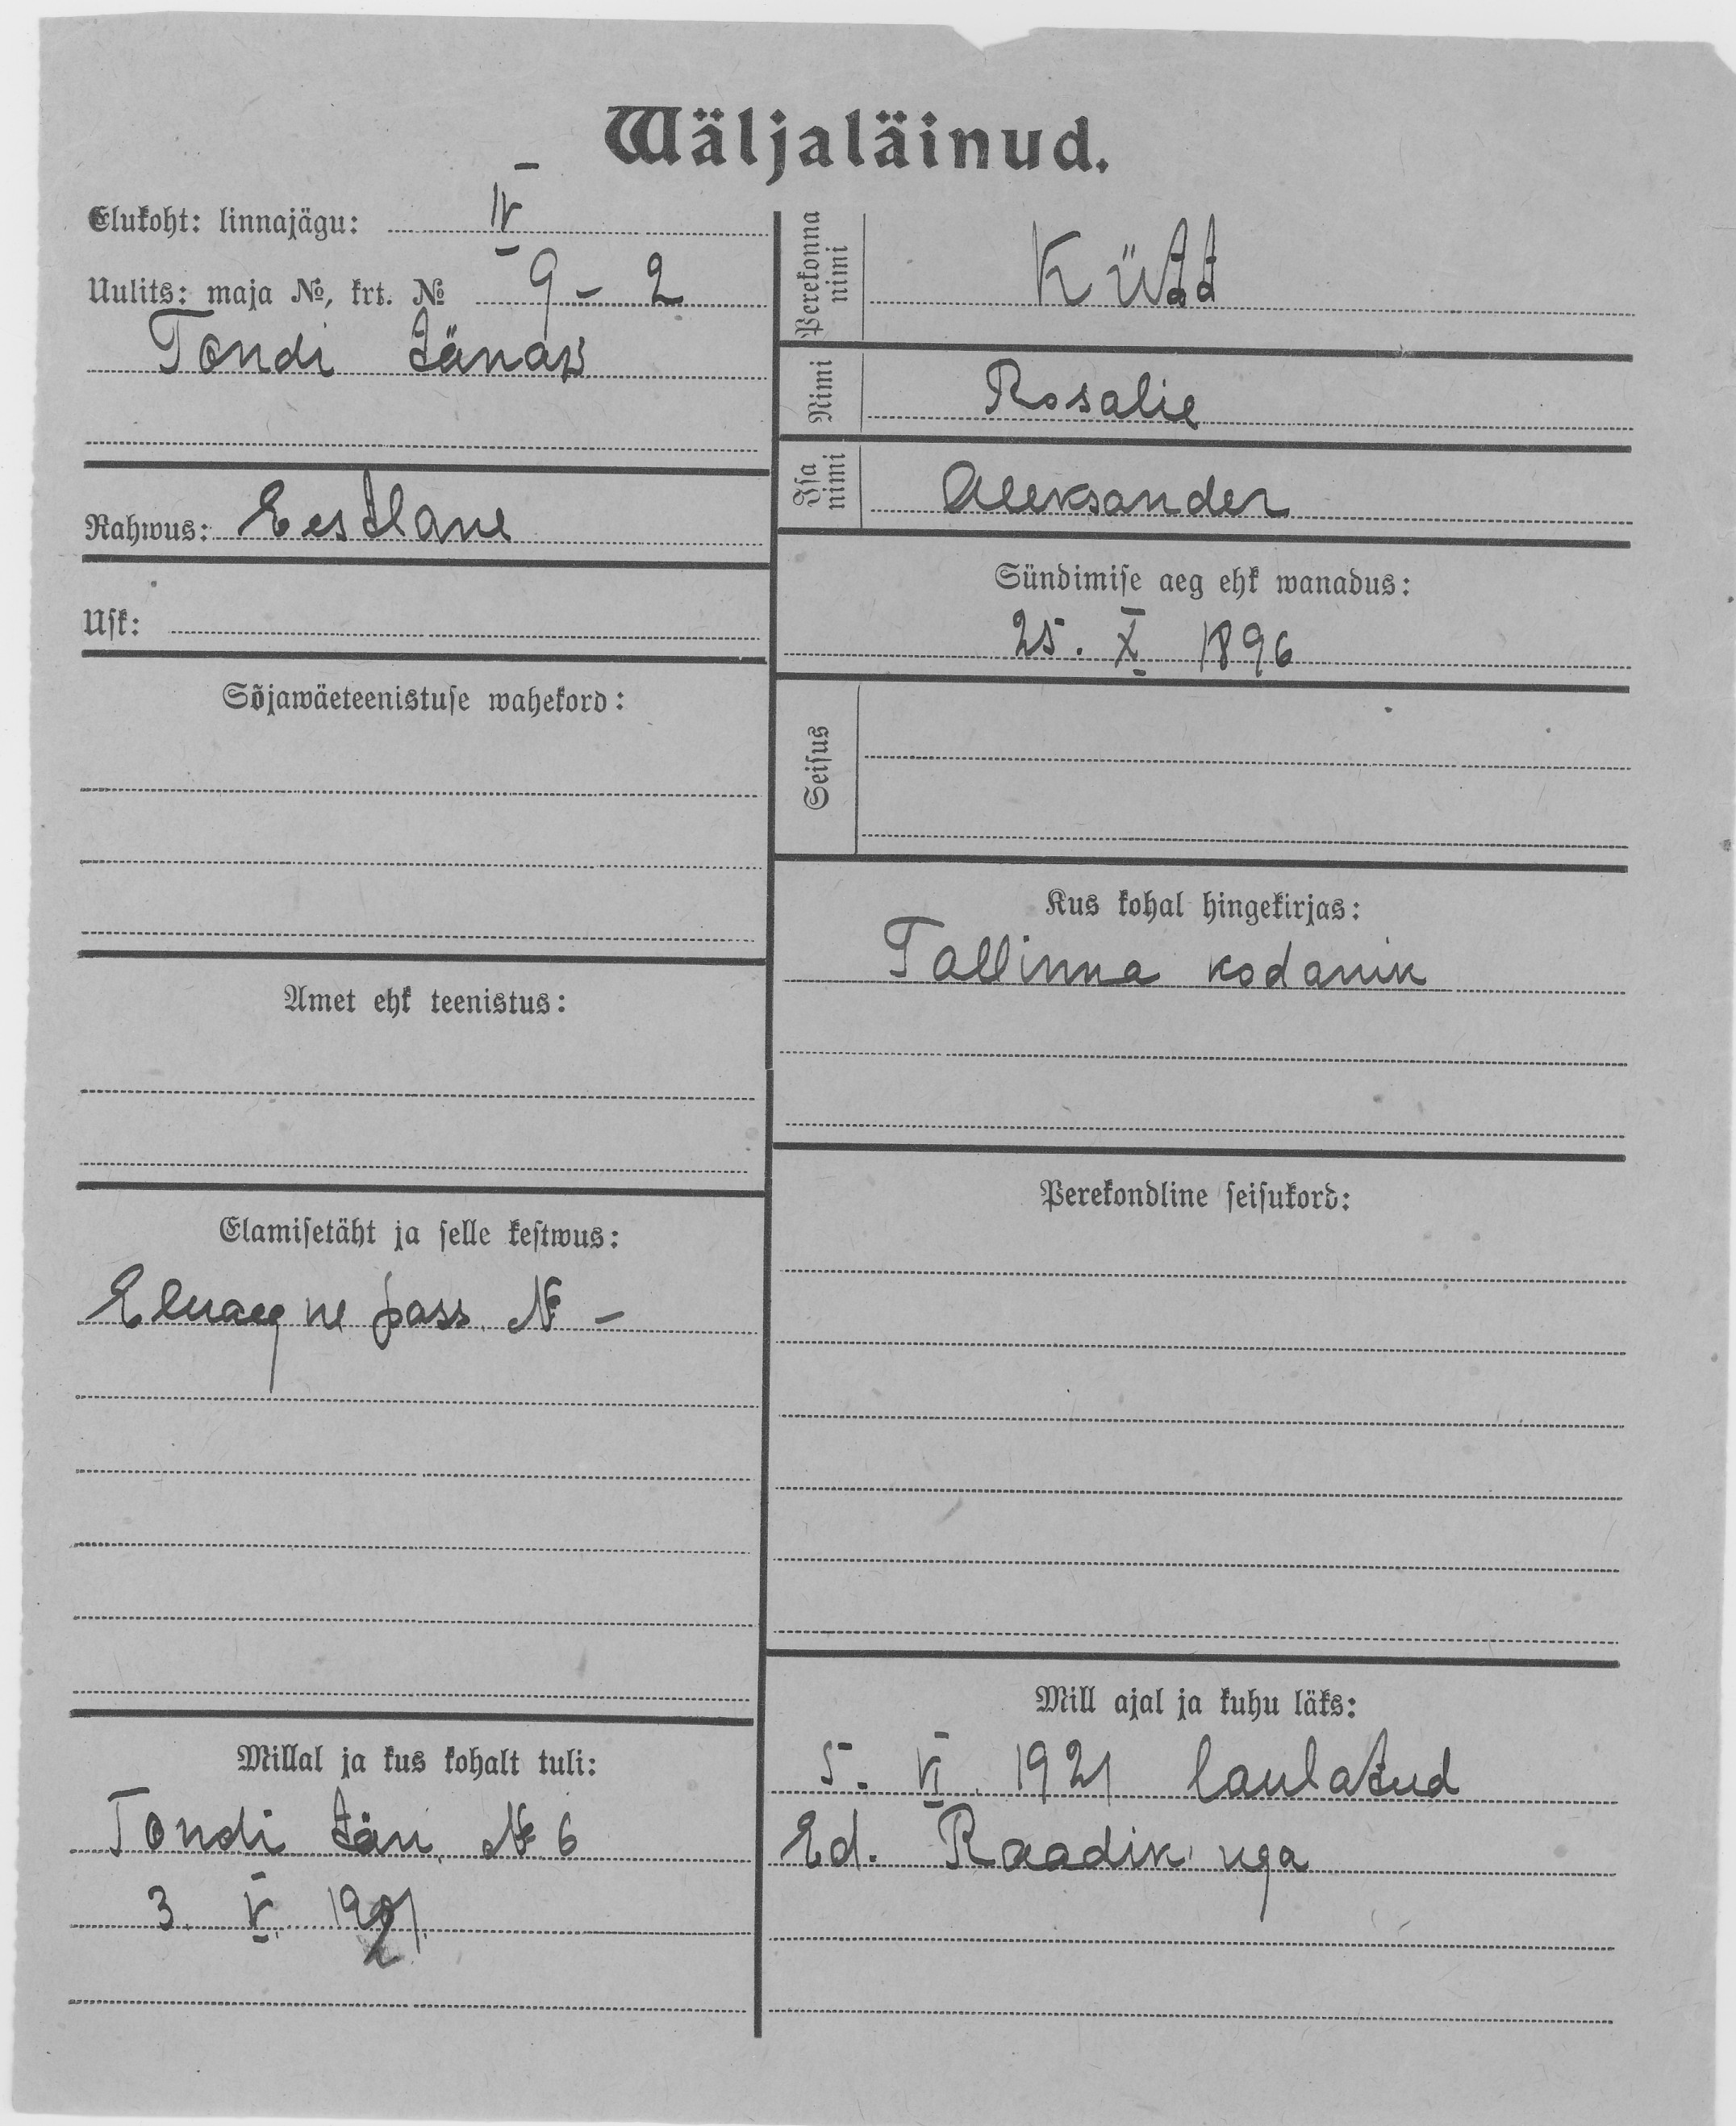 Wäljaläinud.
Elukoht: linnajägu: IV
Uulits: maja №, krt. № 9 - 2
Tondi tänaw
Rahwus: Eestlane
Usk:
Sõjawäeteenistuse wahekord:
Amet ehk teenistus:
Elamisetäht ja selle kestwus:
Eluaegne pass. № -
Millal ja kus kohalt tuli:
Tondi tän. № 6
3. V. 1921.
Perekonna nimi Kütt
Nimi Rosalie
Isa nimi Aleksander
Sündimise aeg ehk wanadus:
25. X 1896
Seisus
Kus kohal hingekirjas:
Tallinna kodanik
Perekondline seisukord:
Mill ajal ja kuhu läks:
5. VI. 1921 laulatud
Ed. Raadik'uga